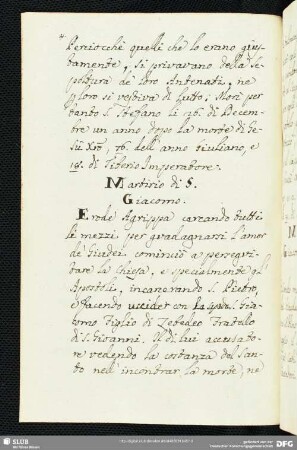 Perciocchè quelli che lo erano gius-
tamente, si privavano della se-
poltura de' loro Antenati, ne
ploro si vestiva di lutto; Morì per
tanto S. Stefano li 26. di Decem-
bre un anno dopo la morte di Ge-
sù Xto, 76. dell' anno Giuliano, e
18. di Tiberio Imperatore.
Martirio di S.
Giacomo.
Erode Agrippa cercando tutti
i mezzi per guadagnarsi l'amor
de' Giudei cominciò a persegui-
tare la Chiesa, e specialmente gl'
Apostoli, incarcerando S. Pietro,
e facendo uccider con la spada S. Gia-
como Figlio di Zebedeo Fratello
di S. Giovanni. Il di lui accusato-
re vedendo la costanza del San-
to nell' incontrar la morte, ne
SLUB
Wir führen Wissen.
gefördert von der
Deutschen Forschungsgemeinschaft
DFG